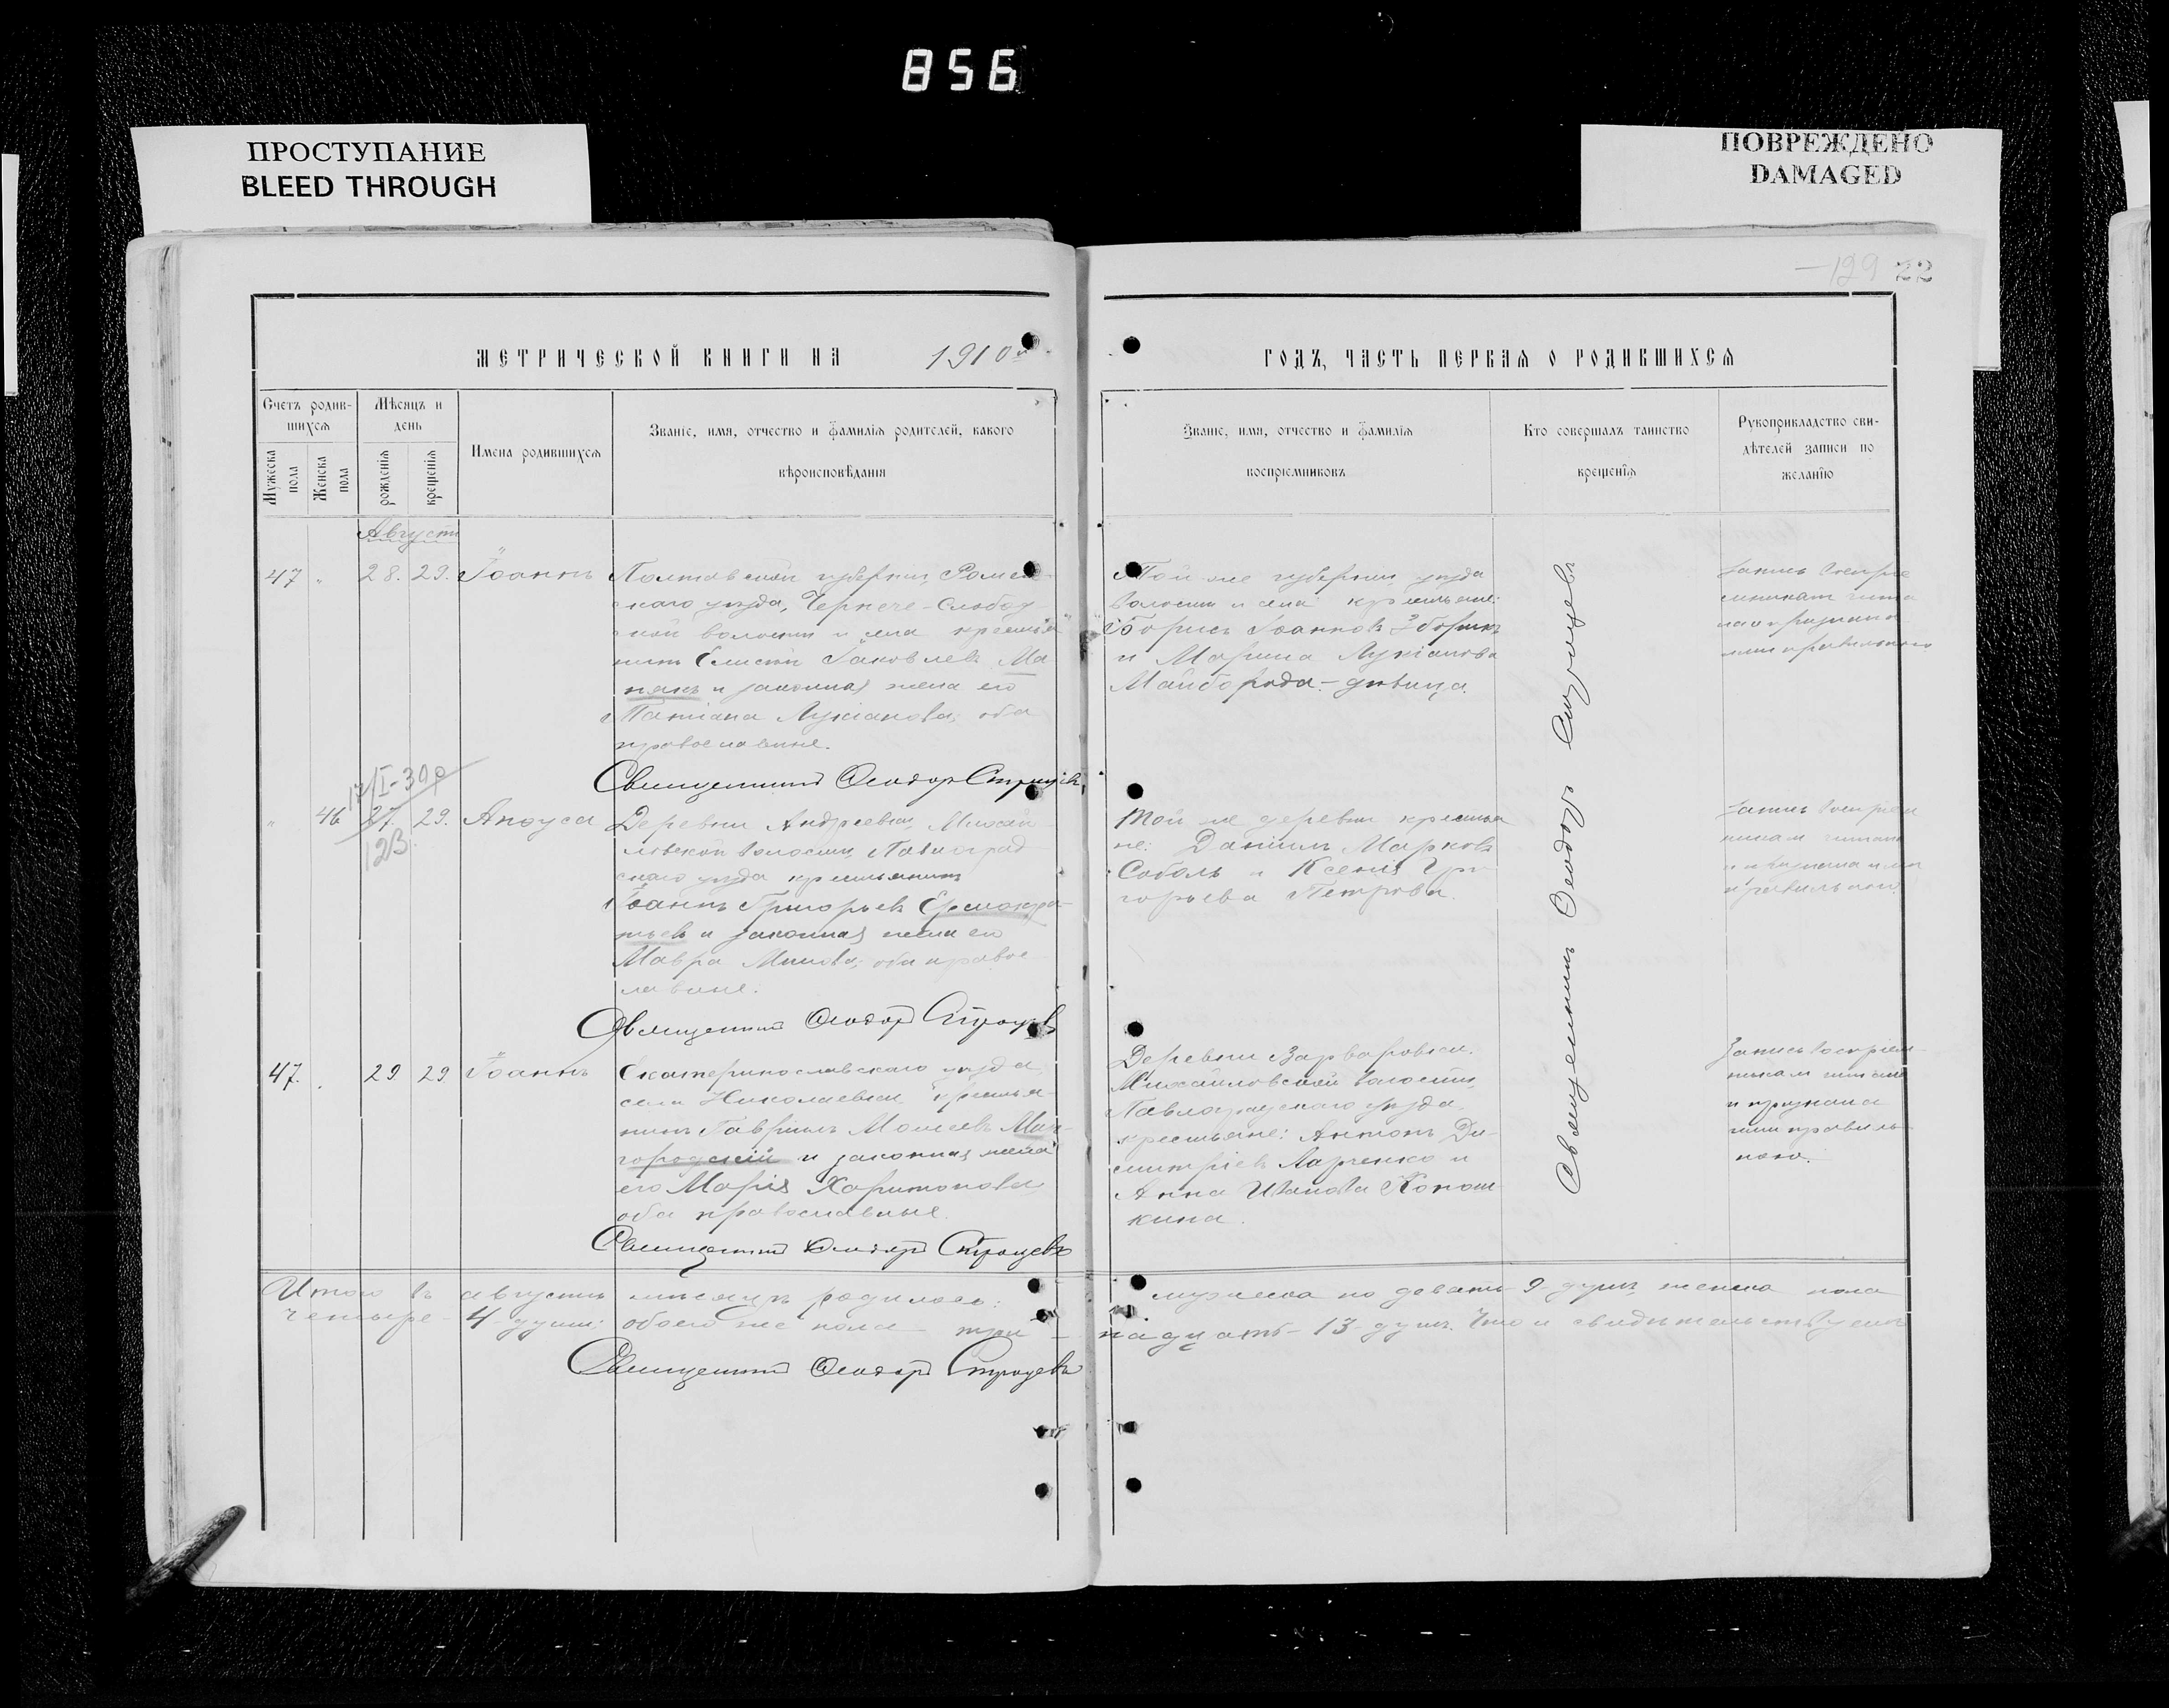 856
ПРОСТУПАНИЕ
BLEED THROUGH
ПОВРЕЖДЕНО
DAMAGED
129 22
МЕТРИЧЕСКОЙ КНИГИ НА 1910й
Счетъ родив-
шихся
Мужеска пола
Женска пола
Мѣсяцъ и
день
рожденія
крещенія
Имена родившихся
Званіе, имя, отчество и фамилія родителей, какого
вѣроисповѣданія
Августъ
47 " 28. 29. Іоаннъ
Полтавской губерніи, Ромен-
скаго уѣзда, Чернече-Слобод-
ской волости и села крестья-
нинъ Іаковлевъ Ма
и законная жена его
Татіана Лукіанова, оба
православные.
Священникъ Ѳеодоръ
17/I-30р
" 46 27. 29.
123
Деревни Андреевки, Михай-
ловской волости, Павлоград-
скаго уѣзда крестьянинъ
Іоаннъ Григорьевъ
и законная жена его
Мавра оба правос-
лавные.
Священникъ Ѳеодоръ
47. 29 29 Іоаннъ
Екатеринославскаго уѣзда,
села Николаевки крестья-
нинъ Гавріилъ Моисеевъ
и законная жена
его Марія Харитонова,
оба православные.
Священникъ Ѳеодоръ
Итого въ августѣ мѣсяцѣ родилось:
четыре - 4 души; обоего же пола три-
Священникъ Ѳеодоръ
ГОДЪ, ЧАСТЬ ПЕРВАЯ О РОДИВШИХСЯ
Званіе, имя, отчество и фамилія
воспріемниковъ
Кто совершалъ таинство
крещенія
Рукоприкладство сви-
дѣтелей записи по
желанію
Той же губерніи, уѣзда
волости и села крестьяне:
Борисъ Іоанновъ
и Марина Лукіанова
Майборода - дѣвица.
Той же деревни крестья-
не: Даніилъ Марковъ
Соболь и Ксенія Гри-
горьева Петрова.
Деревни Варваровки
Михайловской волости,
Павлоградскаго уѣзда,
крестьяне: Антонъ Ди-
митріевъ Ларченко и
Анна Иванова
кина.
Священникъ Ѳеодоръ
Запись воспріем-
никам читана
и признана
ими правильною
Запись воспріем-
никам читана
и признана ими
правильною.
Запись воспріем-
никам читана
и признана
ими правиль-
ною.
мужеска по девять - 9 душъ, женска пола
надцать - 13 душъ. Что и свидѣтельствуемъ